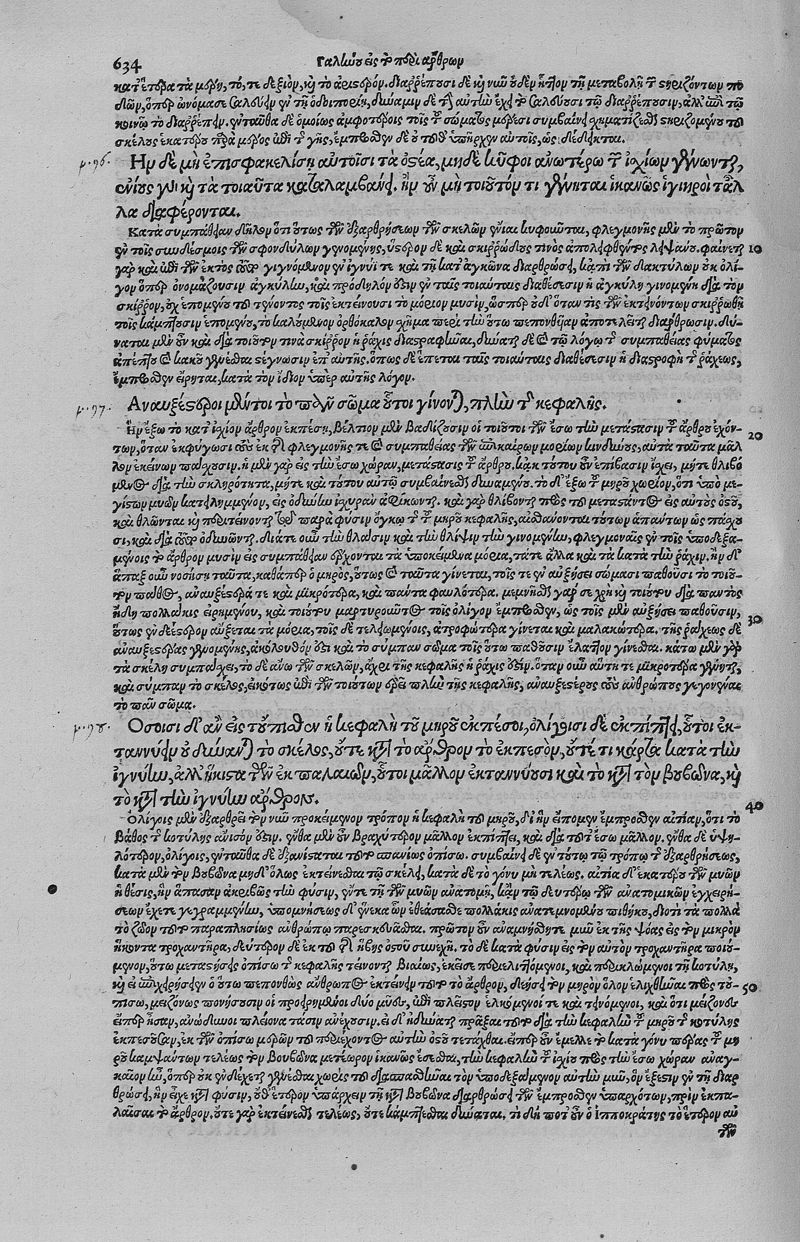 634 Γαληνοῦ εἰς τὸ περὶ ἄρθρων
καθ' ἕτερα τὰ μέρη, τό, τε δεξιὸν, καὶ τὸ ἀριστερόν. διαρρέπουσι δὲ καὶ νῦν οὐδὲν ἧττον τῇ μεταβολῇ τῶν στηριζόντων πο
δῶν, ὅπερ ὠνόμασε σαλεύειν ἐν τῇ ὁδοιπορίῃ, δύναμιν δὲ τὴν αὐτὴν ἔχει τὸ σαλεύουσι τῷ διαρρέπουσιν, ἀλλ' ἐπὶ τῷ
κοινῷ τὸ διαρρέπειν. ἐνταῦθα δὲ ὁμοίως ἀμφοτέροις τοῖς τοῦ σώματος μέρεσι συμβαίνει σχηματίζεσθαι στηριζομένου τοῦ
σκέλους ἑκατέρου παρὰ μέρος ἐπὶ τῆς γῆς, ἔμπροσθεν δὲ οὐ τοῦθ' ὑπῆρχεν αὐτοῖς, ὡς δέδεικται.
μ. 96. Ἢν δὲ μὴ ἐπισφακελίσῃ αὐτοῖσι τὰ ὀστέα, μηδὲ κυφοὶ ἀνωτέρω τῶν ἰσχίων γένωνται,
ἐνίους γὰρ καὶ τὰ τοιαῦτα καταλαμβάνει. ἢν οὖν μὴ τοιοῦτόν τι γένηται ἱκανῶς ὑγιηροὶ τἆλ
λα διαφέρονται.
Κατὰ συμπάθειαν δηλονότι οὕτως τῶν ἐξαρθρήσεων τῶν σκελῶν ἔνιαι κυφοῦνται, φλεγμονῆς μὲν τὸ πρῶτον
ἐν τοῖς συνδέσμοις τῶν σφονδύλων γενομένης, ὕστερον δὲ καὶ σκιρρώδους τινὸς ἀπολειφθέντος λειψάνου. φαίνεται 10
γὰρ καὶ ἐπὶ τῶν ἐκτὸς οὕτω γιγνόμενον ἐν ἰγνύι τε καὶ τῇ κατ' ἀγκῶνα διαρθρώσει, κἀπὶ τῶν δακτύλων οὐκ ὀλί-
γον ὅπερ ὀνομάζουσιν ἀγκύλην, καὶ πρόδηλόν ἐστιν ἐν ταῖς τοιαύταις διαθέσεσιν ἡ ἀγκύλη γινομένη διὰ τὸν
σκίρρον, οὐχ ἑπομένου τοῦ τένοντος τοῖς ἐκτείνουσι τὸ μόριον μυσὶν, ὥσπερ οὐδ' ὅταν τις τῶν ἐκτεινόντων σκιρρωθῇ
τοῖς κάμπτουσιν ἑπομένου, τὸ καλούμενον ὀρθόκωλον σχῆμα περὶ τὴν οὕτω πεπονθυῖαν ἀποτελεῖται διάρθρωσιν. δύ-
ναται μὲν οὖν καὶ διὰ τοιοῦτόν τινα σκίρρον ἡ ῥάχις διαστραφῆναι, δύναται δὲ καὶ τῷ λόγῳ τῆς συμπαθείας φύματος
ἀπέπτου καὶ κακοῦ γενέσθαι σύγνωσιν ἐπ' αὐτῆς. ὅπως δὲ ἕπεται ταῖς τοιαύταις διαθέσεσιν ἡ διαστροφὴ τῆς ῥάχεως,
ἔμπροσθεν εἴρηται, κατὰ τὸν ἴδιον ὑπὲρ αὐτῆς λόγον.
μ. 97. Ἀναυξέστεροι μέντοι τὸ πᾶν σῶμα οὗτοι γίνονται, πλὴν τῆς κεφαλῆς.
Ἢν ἔξω τὸ κατ' ἰσχίον ἄρθρον ἐκπέσῃ, βέλτιον μὲν βαδίζουσιν οἱ τοιοῦτοι τῶν ἔσω τὴν μετάστασιν τοῦ ἄρθρου ἐχόν-
των, ὅταν ἐκφύγωσι τοὺς ἐκ τῆς φλεγμονῆς τε καὶ συμπαθείας τῶν ἐπικαίρων μορίων κινδύνους, αὐτὰ ταῦτα μᾶλ 20
λον ἐκείνων πάσχουσιν. ἡ μὲν γὰρ εἰς τὴν ἔσω χώραν, μετάστασις τοῦ ἄρθρου, κἀκ τούτου τὴν ἐπίβασιν ἴσχει, μήτε θλιβό
μενος διὰ τὴν σκληρότητα, μήτε κατὰ τούτου αὐτῷ συμβαίνεσθαι δυναμένου. τὸ δ' ἔξω τοῦ μηροῦ χωρίον, ὅτι ὑπὸ με-
γίστων μυῶν κατειλημμένον, εἰς ὀδύνην ἰσχυρὰν ἀφικνεῖται. καὶ γὰρ θλίβονται πρὸς τοῦ μεταστάντος εἰς αὐτοὺς ὀστοῦ,
καὶ θλῶνται καὶ περιτείνονται τῷ παρὰ φύσιν ὄγκῳ τῆς τοῦ μηροῦ κεφαλῆς, αἰσθάνονται τούτων ἁπάντων ὡς πάσχου
σι, καὶ διὰ τοῦτο ὀδυνῶνται. διά τε οὖν τὴν θλάσιν καὶ τὴν θλίψιν τὴν γινομένην, φλεγμοναῖς ἐν τοῖς ὑποδεξα-
μένοις τὸ ἄρθρον μυσὶν εἰς συμπάθειαν ἔρχονται τὰ ὑποκείμενα μόρια, τά τε ἄλλα καὶ τὰ κατὰ τὴν ῥάχιν. ἢν δ'
ἅπαξ οὖν νοσήσῃ ταῦτα, καθάπερ ὁ μηρὸς, οὕτως καὶ ταῦτα γίνεται, τοῖς τε ἐν αὐξήσει σώμασι παθοῦσι τὸ τοιοῦ-
τον πάθος, ἀναυξέστερά τε καὶ μικρότερα, καὶ πάντα φαυλότερα. μεμνῆσθαι γάρ σε χρὴ καὶ τούτου διὰ παντὸς
ἤδη πολλάκις εἰρημένου, καὶ τούτου μαρτυροῦντος τοῖς ὀλίγον ἔμπροσθεν, ὡς τοῖς μὲν αὐξήσει παθοῦσιν,
οὕτως ἐνδεέστερον αὔξεται τὰ μόρια, τοῖς δὲ τελειωμένοις, ἀτροφώτερα γίνεται καὶ μαλακώτερα. τῆς ῥάχεως δὲ 30
ἀναυξεστέρας γενομένης, ἀκόλουθόν ἐστι καὶ τὸ σύμπαν σῶμα τοῖς οὕτω παθοῦσιν ἔλαττον γίνεσθαι. κάτω μὲν γὰρ
τὰ σκέλη συμπάσχει, τὸ δὲ ἄνω τῶν σκελῶν, ἄχρι τῆς κεφαλῆς ἡ ῥάχις ἐστίν. ὅταν οὖν αὕτη τε μικροτέρα γένηται,
καὶ σύμπαν τὸ σκέλος, εἰκότως ἐπὶ τῶν τοιούτων ἐρεῖ πλὴν τῆς κεφαλῆς, ἀναυξεστέρους τοὺς ἀνθρώπους γεγονέναι
τὸ πᾶν σῶμα.
μ. 98. Ὅσοισι δ' ἂν εἰς τοὔπισθεν ἡ κεφαλὴ τοῦ μηροῦ ἐκπέσῃ, ὀλίγοισι δὲ ἐκπίπτει, οὗτοι ἐκ-
ταννύειν οὐ δύνανται τὸ σκέλος, οὔτε κατὰ τὸ ἄρθρον τὸ ἐκπεσὸν, οὔτέ τι κάρτα κατὰ τὴν
ἰγνύην, ἀλλ' ἥκιστα τῶν ἐκπαλαίων, οὗτοι μᾶλλον ἐκταννύουσι καὶ τὸ κατὰ τὸν βουβῶνα, καὶ
τὸ κατὰ τὴν ἰγνύην ἄρθρον.
Ὀλίγοις μὲν ἐξαρθρεῖ τὸν νῦν προκείμενον τρόπον ἡ κεφαλὴ τοῦ μηροῦ, δι' ἣν εἴπομεν ἔμπροσθεν αἰτίαν, ὅτι τὸ 40
βάθος τῆς κοτύλης ἄνισόν ἐστιν. ἔνθα μὲν οὖν βραχύτερον μᾶλλον ἐκπίπτει, καὶ διὰ τοῦτ' ἔσω μᾶλλον. ἔνθα δὲ ὑψη-
λότερον, ὀλίγοις, ἐνταῦθα δὲ ἐξανίσταται τοῦτο σπανίως ὀπίσω. συμβαίνει δὲ ἐν τούτῳ τῷ τρόπῳ τῆς ἐξαρθρήσεως,
κατὰ μὲν τὸν βουβῶνα μηδ' ὅλως ἐκτείνεσθαι τῷ σκέλει, κατὰ δὲ τὸ γόνυ μὴ τελέως. αἰτία δ' ἑκατέρου τῶν μυῶν
ἡ θέσις, ἣν ἅπασαν ἀκριβῶς τὴν φύσιν, ἔν τε τῇ τῶν μυῶν ἀνατομῇ, κἀν τῷ δευτέρῳ τῶν ἀνατομικῶν ἐγχειρή-
σεων ἔχετε γεγραμμένην, ὑπομνήσεως δ' ἕνεκα ὧν ἐθεάσασθε πολλάκις ἀνατεμνομένου πιθήκου, διότι τὰ πολλὰ
τὸ ζῶον τοῦτο παραπλησίως ἀνθρώπῳ παρεσκεύασται. πρῶτον οὖν ἀναμνήσθητε μυῶν ἐκ τῆς ψόας εἰς τὸν μικρὸν
ἥκοντα τροχαντῆρα, δεύτερον δὲ ἐκ τοῦ τῆς ἥβης ὀστοῦ συνεχῆ. τὸ δὲ κατὰ φύσιν εἰς τὸν αὐτὸν τροχαντῆρα ποιού-
μενον, οὕτω μεταστάσης ὀπίσω τῆς κεφαλῆς τείνονται βιαίως, ἐκεῖσε περιελιττόμενοι, καὶ περικλώμενοι τῇ κοτύλῃ,
καὶ εἰ ἐπιχειρήσειεν ὁ οὕτω πεπονθὼς ἄνθρωπος ἐκτείνειν τοῦτο τὸ ἄρθρον, δεήσει τὸν μηρὸν ὅλον ἑλχθῆναι πρὸς τοὐ- 50
πίσω, μειζόνως πονήσουσιν οἱ προειρημένοι δύο μῦες, ἐπὶ πλεῖστον ἑλκόμενοί τε καὶ τεινόμενοι, καὶ ὅτι μείζονες
εἴπερ ἦσαν, ἀνώδυνοι πλείονα τάσιν ἀνέχουσιν. εἰ δ' ἠδύνατο πρᾶξαι τοῦτο διὰ τὴν κεφαλὴν τοῦ μηροῦ τῆς κοτύλης
ἐκπεσοῦσαν, ἐκ τῶν ὀπίσω μερῶν τοῦ περιέχοντος αὐτὴν ὀστοῦ τέτακται. εἴπερ οὖν ἔμελλε τὸ κατὰ γόνυ πέρας τοῦ μη
ροῦ καμψάντων τελέως τὸν βουβῶνα μετέωρον ἱκανῶς ἔσεσθαι, τὴν κεφαλὴν τοῦ ἰσχίου πρὸς τὴν ἔσω χώραν ἀναγ-
καῖον ἦν, ὅπερ οὐκ ἐνδέχεται γενέσθαι χωρὶς τοῦ διασπασθῆναι τὸν ὑποδεξάμενον αὐτὴν μῦν, ὃν ἕξεσιν ἐν τῇ διαρ
θρώσει, ἣν εἶχε κατὰ φύσιν, οὐδ' ἕτερον ὑπάρχειν τῇ κατὰ βουβῶνα διαρθρώσει τῶν ἔμπροσθεν ὑπαρχόντων, πρὶν ἐκπα-
λαιῶσαι τὸ ἄρθρον. οὔτε γὰρ ἐκτείνεσθαι τελέως, οὔτε κάμπτεσθαι δύναται. τί δή ποτ' οὖν ὁ ἱπποκράτης τὸ ἕτερον αὐ
τῶν